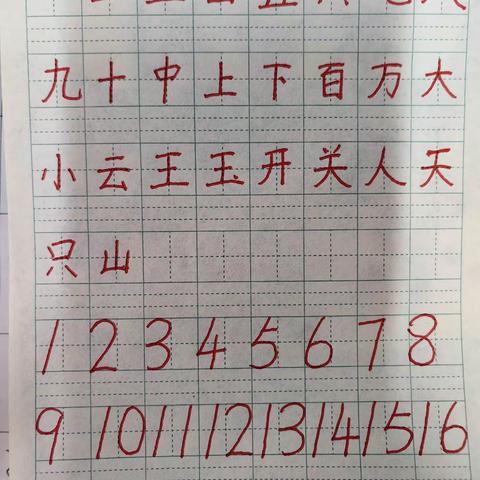 九十中上下百万大
小云王玉开关人天
只山
1 2 3 4 5 6 7 8
9 10 11 12 13 14 15 16